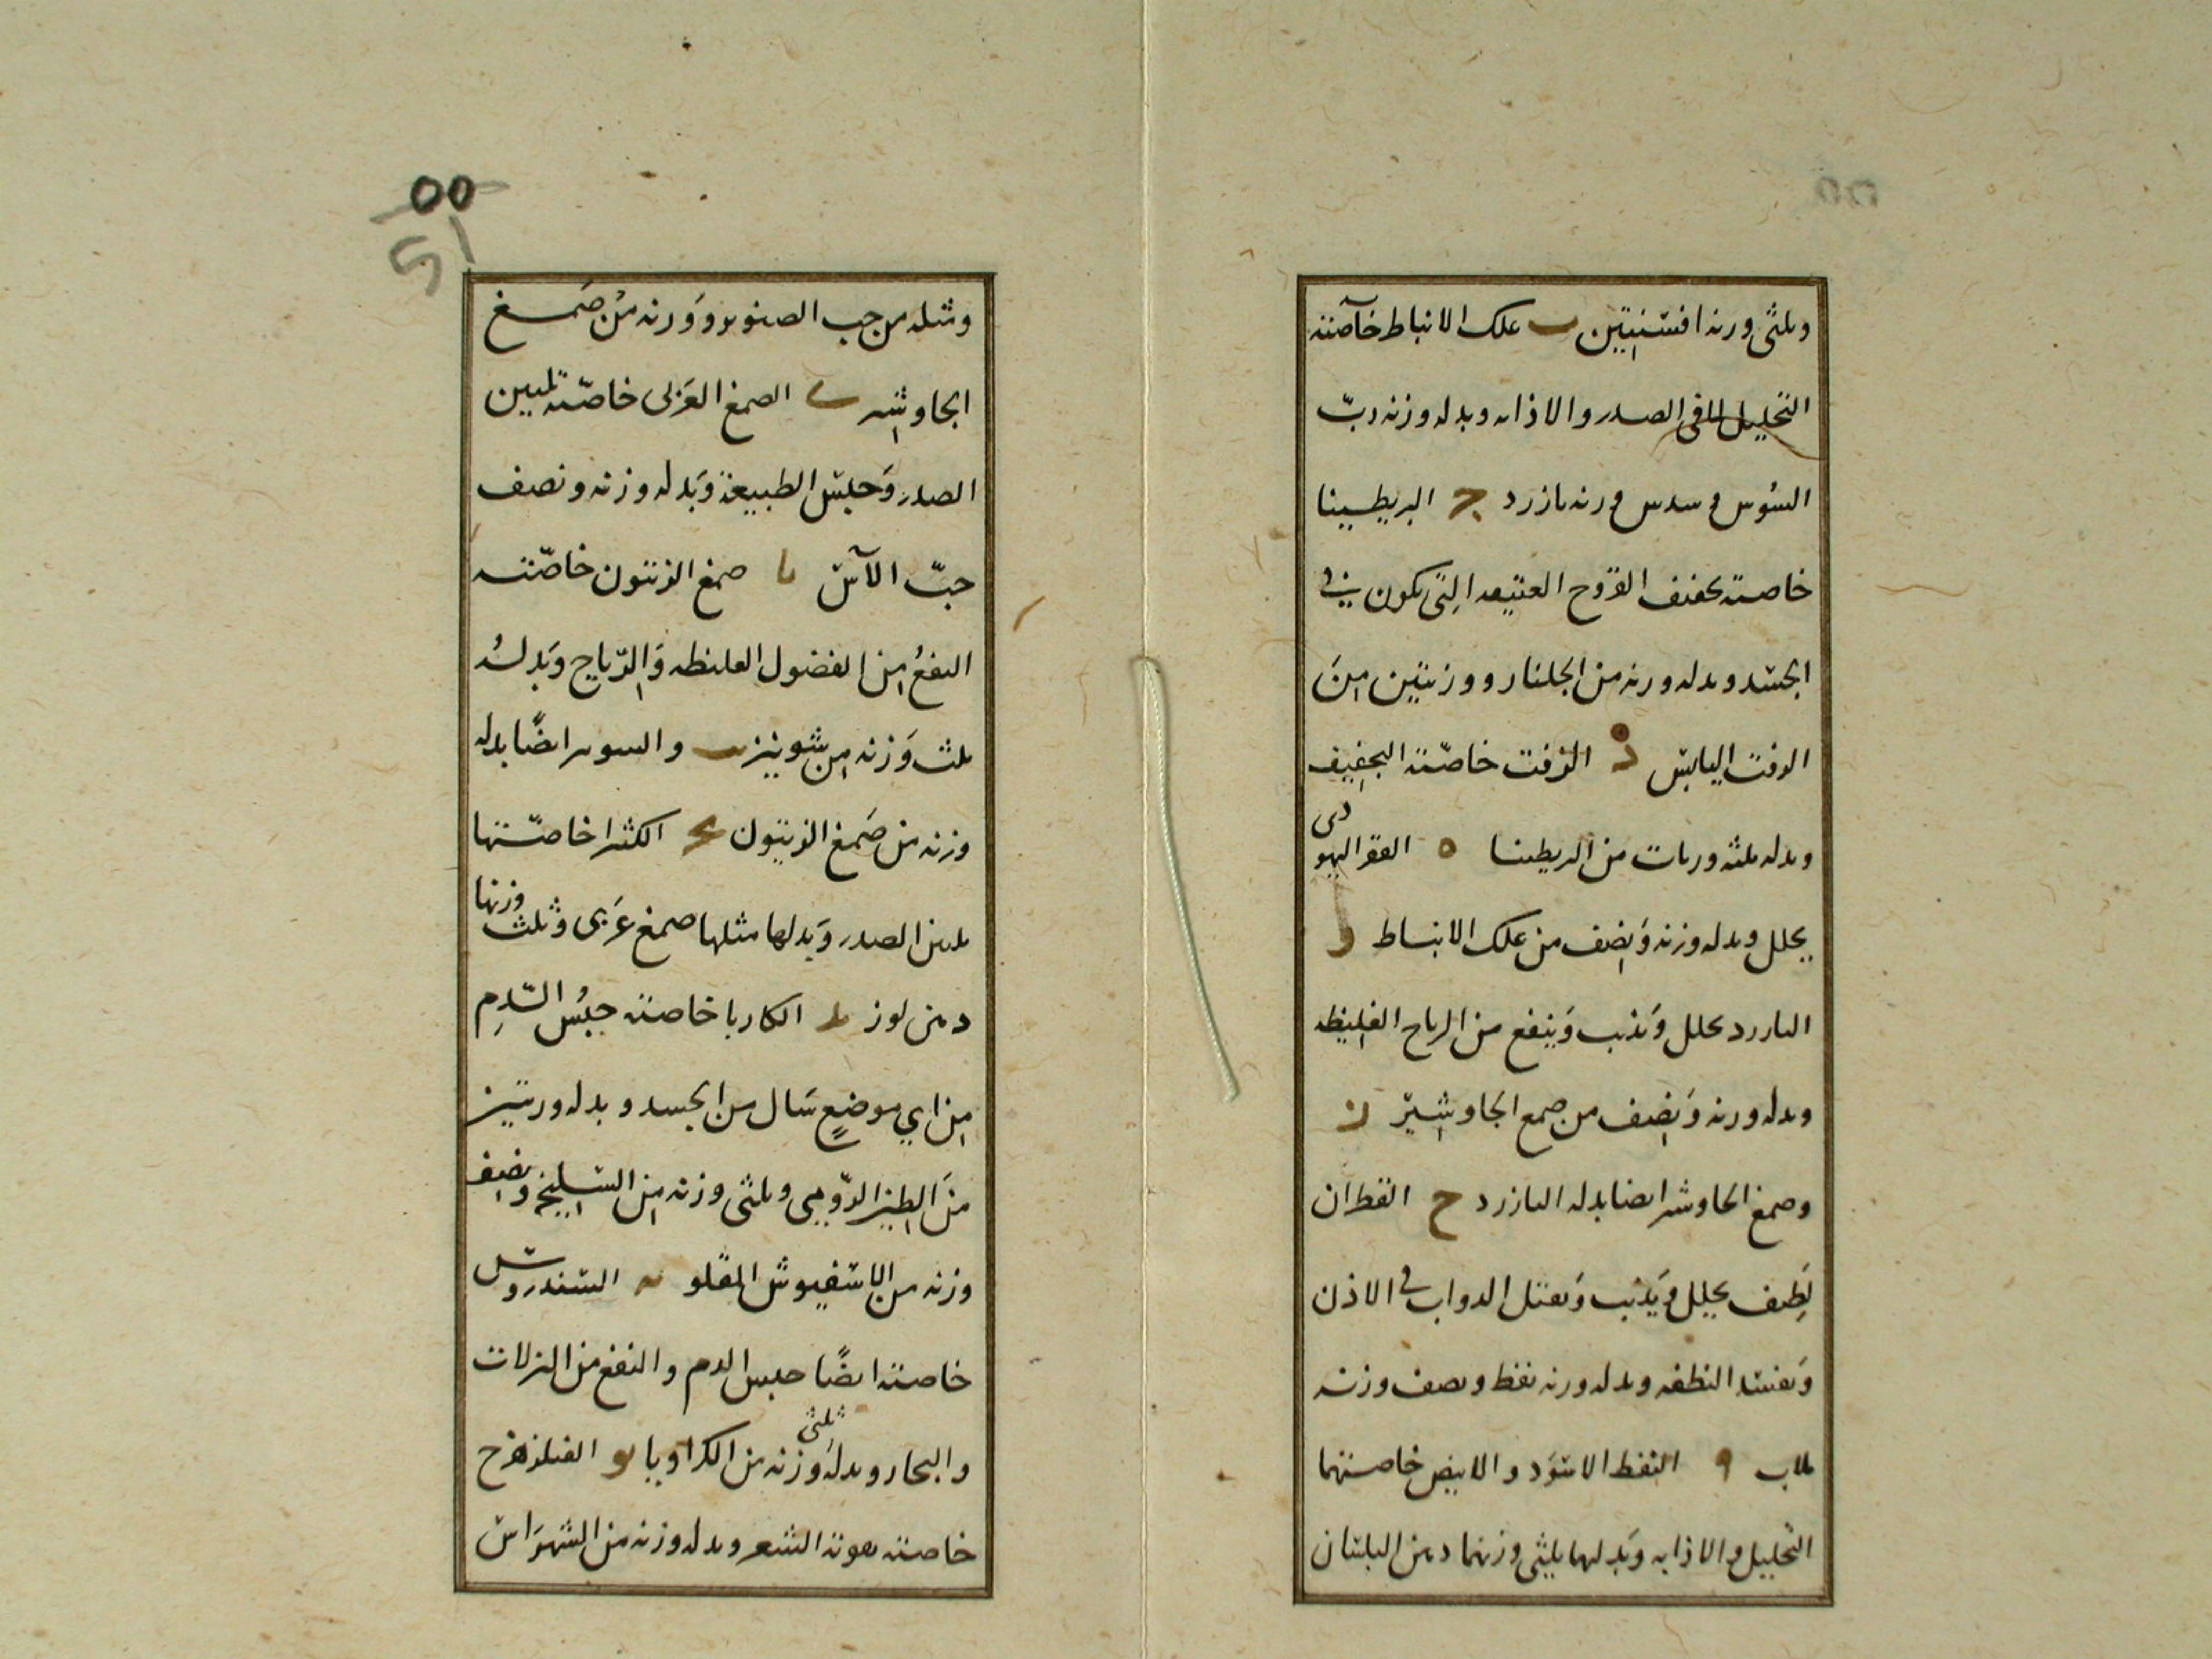 وثلثى ورنه افسنتين ب علك الانباط خاصته
التحليل لما فى الصدر والاذابه وبدله وزنه ربّ
السُوس و سدس ورنه بازرد ج البريطسينا
خاصته تجفف القروح العتيقه التى تكون فى
الجسد وبدله ورنه من الجلنار ووزنين من
الزفت اليابس د الزفت خاصّته التجفيف
وبدله ثلثه وزنات من البريطسينا ه القفر اليهودى
يحلل وبدله وزنه ونصف من علك الانباط و
البارزد يحلل ويذيب وينفع من الرياح الغليظه
وبدله ورنه ونصف من صمع الجاوشير ز
وصمغ الجاوشير ايضا بدله البازرد ح القطران
لطيف يحلل ويذيب ويقتل الدواب فى الاذن
ويفسد النطفه وبدله ورنه نفط ونصف وزنه
ملاب النفط الاسود والابيض خاصتهما
التحليل والاذابه وبدلهما ثلثى وزنهما دهن البلسان
00
51
ومثله من حب الصنوبر ووزنه من صمغ
الجاوشير ى الصمغ العربى خاصّته تليين
الصدر وحبس الطبيعة وبدله وزنه ونصف
حبّ الآس يا صمغ الزيتون خاصّته
النفع من الفضول الغليظه والرّياح وبدله
ثلث وزنه من شونيز يب والسوس ايضًا بدله
وزنه من صمغ الزيتون يج الكثيرا خاصّتها
تليين الصدر وبدلها مثلها صمغ عربى وثلث وزنها
دهن لوز يد الكاربا خاصته حبس الدّم
من اي موضع سال من الجسد وبدله وزنين
من الطين الرّومى وثلثى وزنه من السليخه ونصف
وزنه من الاسفيوش المقلو يه السندروس
خاصته ايضًا حبس الدم والنفع من النزلات
والبخار وبدله ثلثى وزنه من الكراويا يو الفيلزهرج
خاصته تقوية الشعر وبدله وزنه من